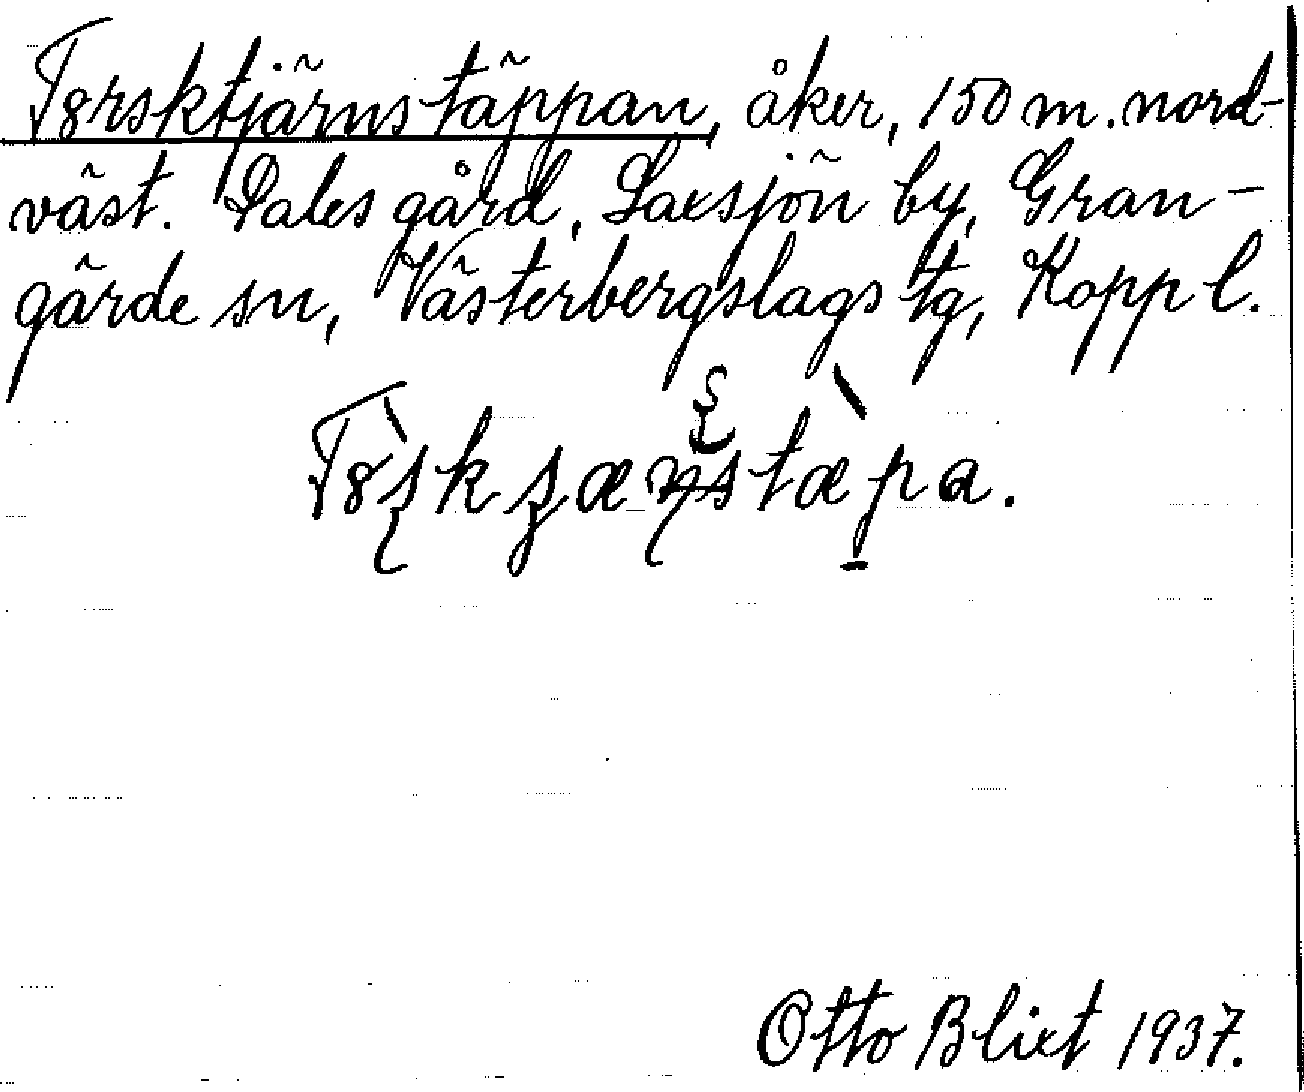 Torsktjärnstäppan, åker, 150 m. nord-
väst. Dalesgård, Saxsjön by, Gran-
gärde sn, Västerbergslags tg, Kopp l.
Otto Blixt 1937.